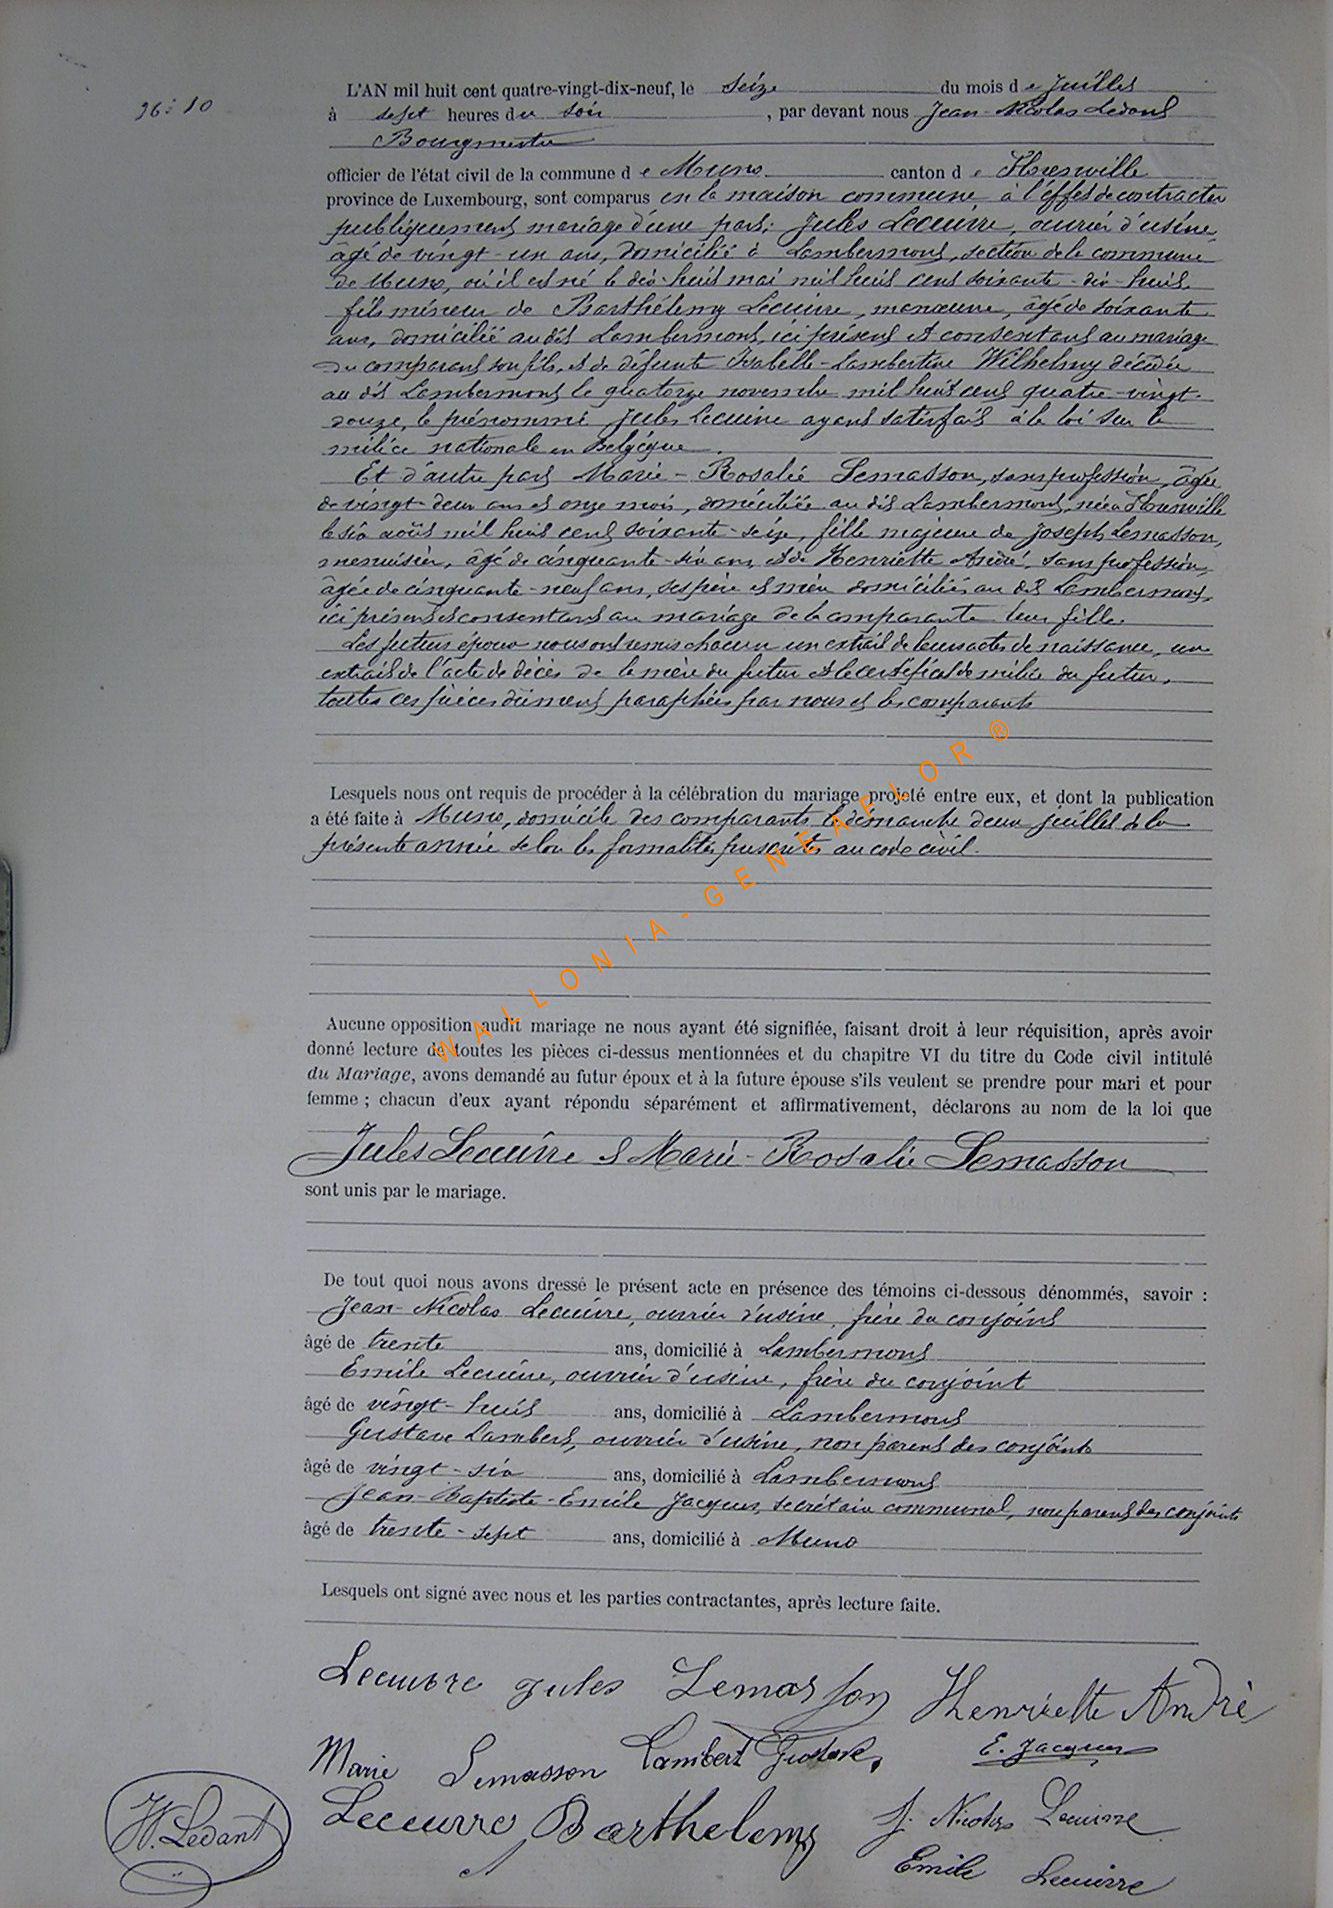 26: 10
L'AN mil huit cent quatre-vingt-dix-neuf, le seize du mois de Juillet
à sept heures du soir, par devant nous Jean-Nicolas Ledant
Bourgmestre
officier de l'état civil de la commune de Muno canton de Florenville
province de Luxembourg, sont comparus en la maison commune à l'effet de contracter
publiquement mariage d'une part: Jules Lecuivre, ouvrier d'usine,
âgé de vingt-un ans, domicilié à Lambermont, section de la commune
de Muno, où il est né le dix-huit mai mil huit cent soixante-dix-huit,
fils mineur de Barthélemy Lecuivre, manœuvre, âgé de soixante
ans, domicilié au dit Lambermont, ici présent et consentant au mariage
du comparant son fils, et de défunte Isabelle-Lambertine Wilhelmy décédée
au dit Lambermont le quatorze novembre mil huit cent quatre-vingt-
douze, le prénommé Jules Lecuivre ayant satisfait à la loi sur la
milice nationale en Belgique.
Et d'autre part Marie-Rosalie Lemasson, sans profession, âgée
de vingt-deux ans et onze mois, domiciliée au dit Lambermont, née à Florenville
le six août mil huit cent soixante-seize, fille majeure de Joseph Lemasson,
menuisier, âgé de cinquante-six ans, et de Henriette André, sans profession,
âgée de cinquante-neuf ans, ses père et mère domiciliés au dit Lambermont,
ici présents et consentants au mariage de la comparante leur fille.
Les futurs époux nous ont remis chacun un extrait de leurs actes de naissance, un
extrait de l'acte de décès de la mère du futur et le certificat de milice du futur,
toutes ces pièces dûment paraphées par nous et les comparants
Lesquels nous ont requis de procéder à la célébration du mariage projeté entre eux, et dont la publication
a été faite à Muno, domicile des comparants le dimanche deux juillet de la
présente année selon les formalités prescrites au code civil.
WALLONIA-GENEAFLOR ®
Aucune opposition audit mariage ne nous ayant été signifiée, faisant droit à leur réquisition, après avoir
donné lecture de toutes les pièces ci-dessus mentionnées et du chapitre VI du titre du Code civil intitulé
du Mariage, avons demandé au futur époux et à la future épouse s'ils veulent se prendre pour mari et pour
femme ; chacun d'eux ayant répondu séparément et affirmativement, déclarons au nom de la loi que
Jules Lecuivre et Marie-Rosalie Lemasson
sont unis par le mariage.
De tout quoi nous avons dressé le présent acte en présence des témoins ci-dessous dénommés, savoir :
Jean-Nicolas Lecuivre, ouvrier d'usine, frère du conjoint
âgé de trente ans, domicilié à Lambermont
Emile Lecuivre, ouvrier d'usine, frère du conjoint
âgé de vingt-huit ans, domicilié à Lambermont
Gustave Lambert, ouvrier d'usine, non parent des conjoints
âgé de vingt-six ans, domicilié à Lambermont
Jean-Baptiste-Emile Jacques, secrétaire communal, non parent des conjoints
âgé de trente-sept ans, domicilié à Muno
Lesquels ont signé avec nous et les parties contractantes, après lecture faite.
Lecuivre Jules Lemasson Henriette André
Marie Lemasson Lambert Gustave. E. Jacques
N. Ledant Lecuivre Barthelemy J. Nicolas Lecuivre
Emile Lecuivre